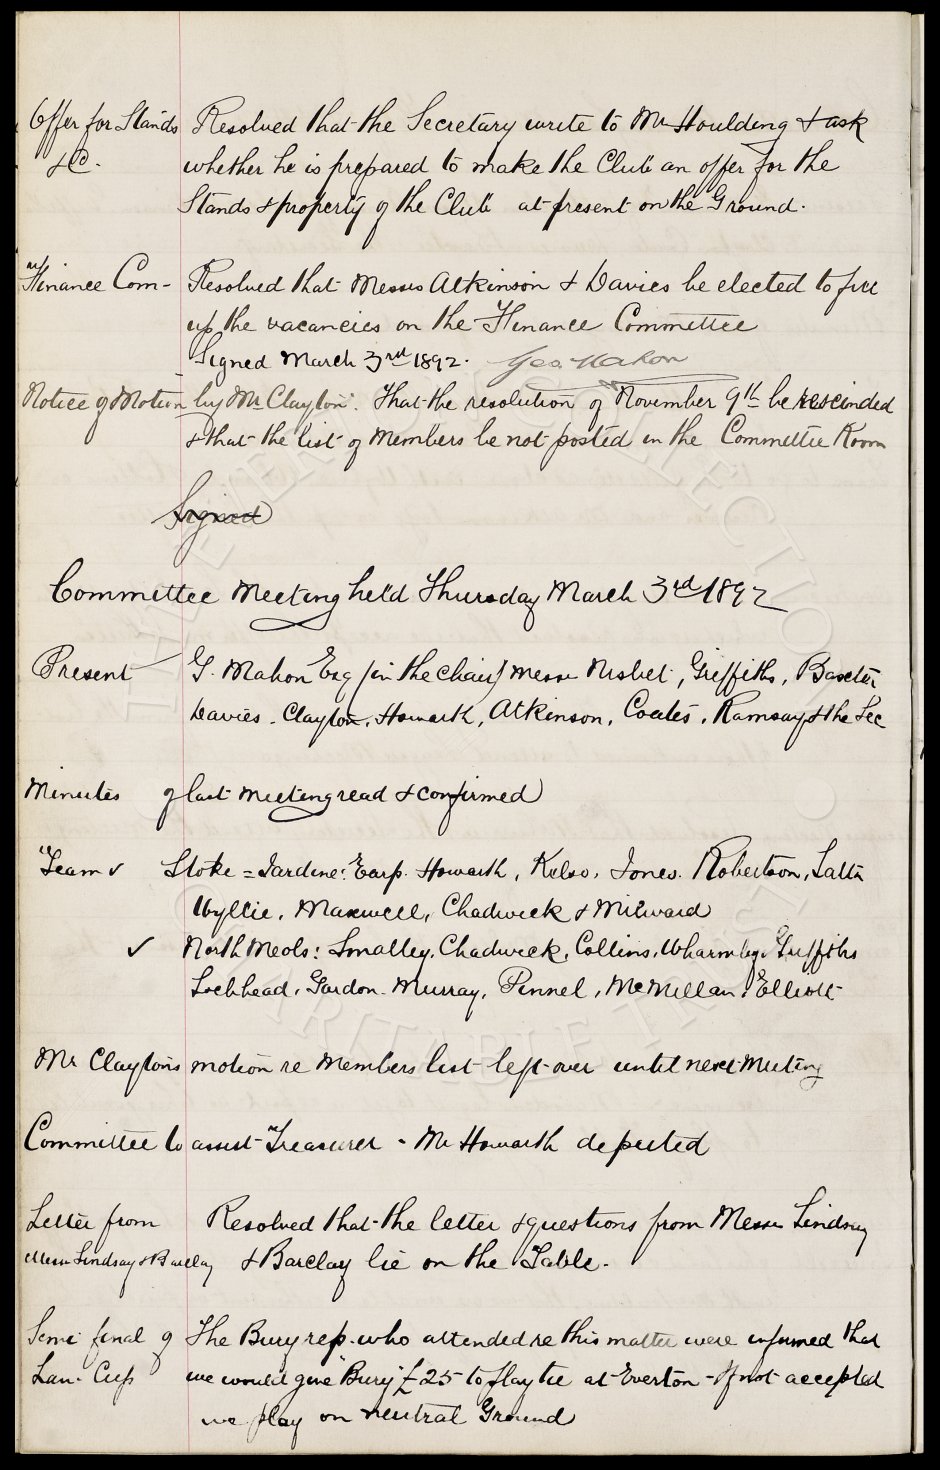 Offer for Stands Resolved that the Secretary write to Mr Houlding & ask
&C. whether he is prepared to make the Club an offer for the
Stands & property of the Club at present on the Ground.
Finance Com- Resolved that Messrs Atkinson & Davies be elected to fill
up the vacancies on the Finance Committee
Signed March 3rd 1892. Geo. Mahon
Notice of Motion by Mr Clayton. That the resolution of November 9th be rescinded
& that the list of Members be not posted in the Committee Room
Signed
Committee Meeting held Thursday March 3rd 1892
Present G. Mahon Esq (in the chair) Messrs Nisbet, Griffiths, Baxter
Davies. Clayton, Howarth, Atkinson, Coates, Ramsay & the Sec
Minutes of last meeting read & confirmed
Team ✓ Stoke = Jardine: Earp. Howarth, Kelso, Jones. Robertson, Latta
Wyllie, Maxwell, Chadwick & Milward
✓ North Meols: Smalley, Chadwick, Collins, Wharmby, Griffiths
Lochhead, Gordon. Murray, Pinnel, McMillan, Elliott
Mr Claytons motion re Members list left over until next Meeting
Committee to assist Treasurer - Mr Howarth deputed
Letter from Resolved that the letter & questions from Messrs Lindsay
Messrs Lindsay & Barclay & Barclay lie on the Table.
Semi final of The Bury rep. who attended re this matter were informed that
Lan. Cup we would give Bury £25 to play tie at Everton - If not accepted
we play on neutral Ground
LIVERPOOL COLLECTION
CHARITABLE TRUST